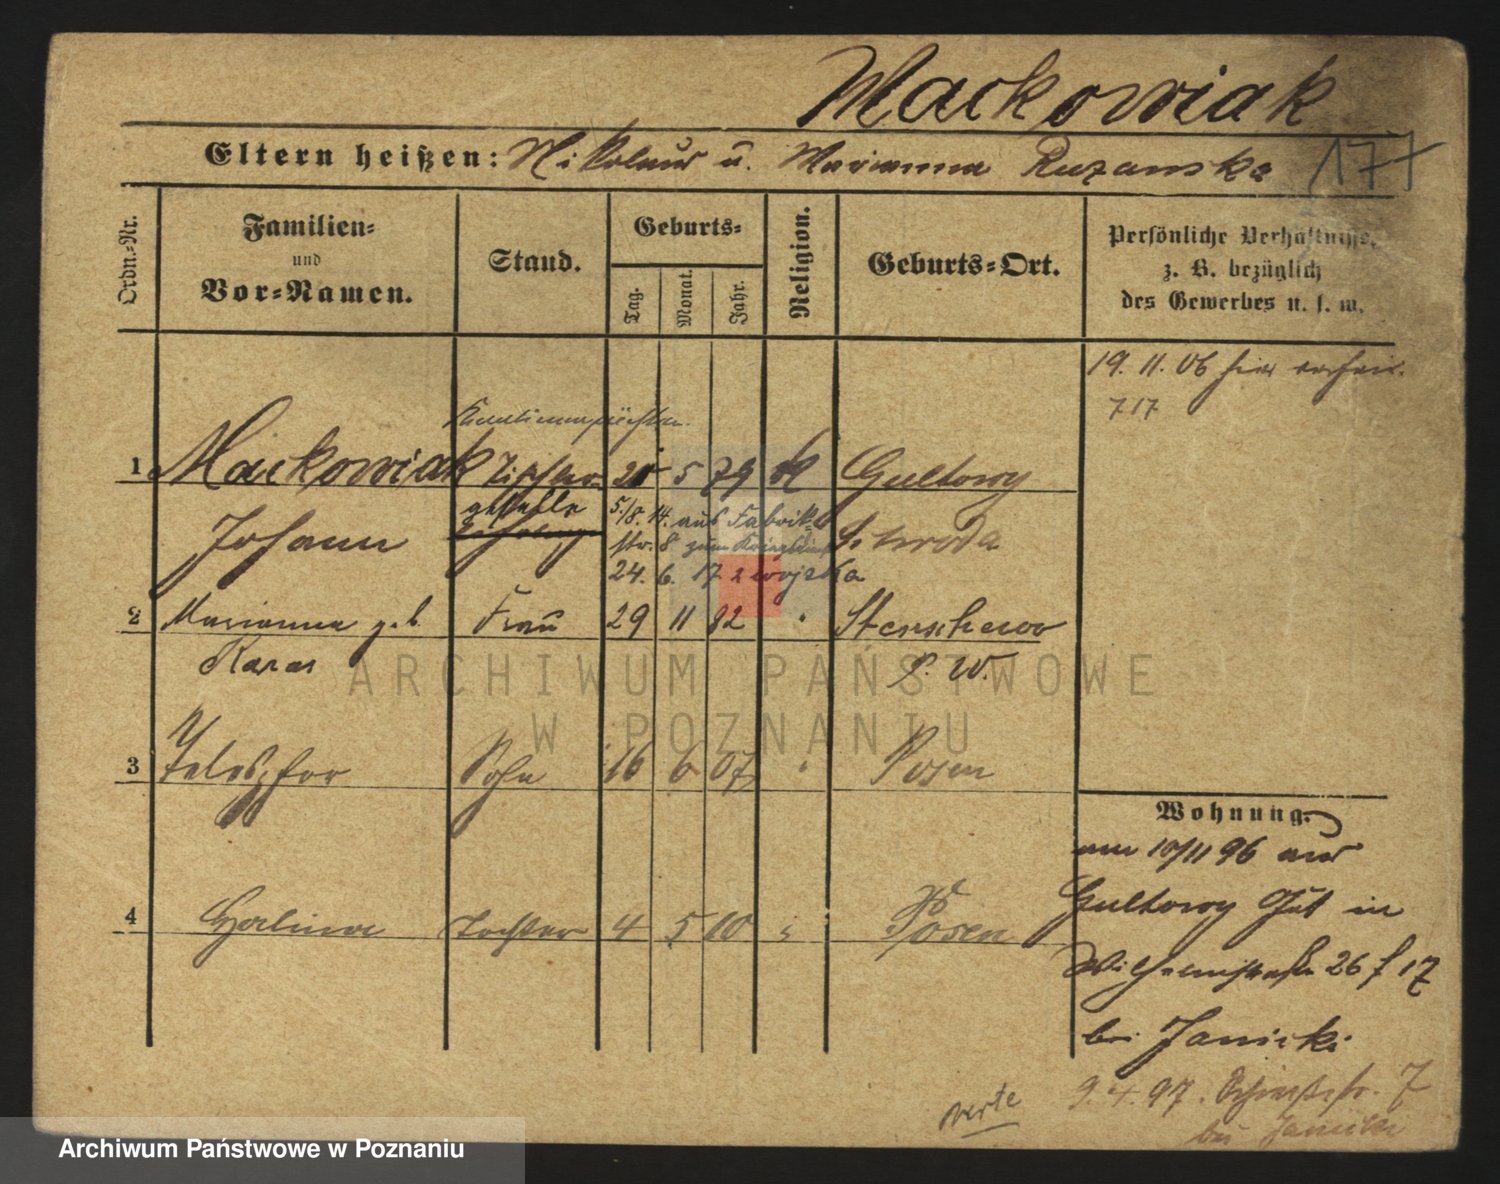 Mackowiak
Eltern heißen: Nikolaus u. Marianna Ruzanska
177
Ordn.-Nr.
Familien-
und
Vor-Namen.
Stand.
Geburts-
Tag.
Monat.
Jahr.
Religion.
Geburts-Ort.
Persönliche Verhältnisse,
z. B. bezüglich
des Gewerbes u. s. w.
19. 11. 06 hier verheir.
717
1 Mackowiak Tischler 5 79 k Gultowy
geselle
Johann Schroda
5./8. 14. aus Fabrik-
str. 8 zum Kriegsdienst
24. 6. 17 z wojska
2 Marianna geb. Frau 29 11 82 " Stenschewo
Karas P. W.
3 Telesphor Sohn 16 6 07 " Posen
4 Halina Tochter 4 5 10 " Posen
Wohnung.
am 10/11 96 aus
Gultowy Gut in
Wilhelmstraße 26 f 17
bei Janicki
9. 4. 97. Schießstr. 7
bei Janicki
verte
ARCHIWUM PAŃSTWOWE
W POZNANIU
Archiwum Państwowe w Poznaniu